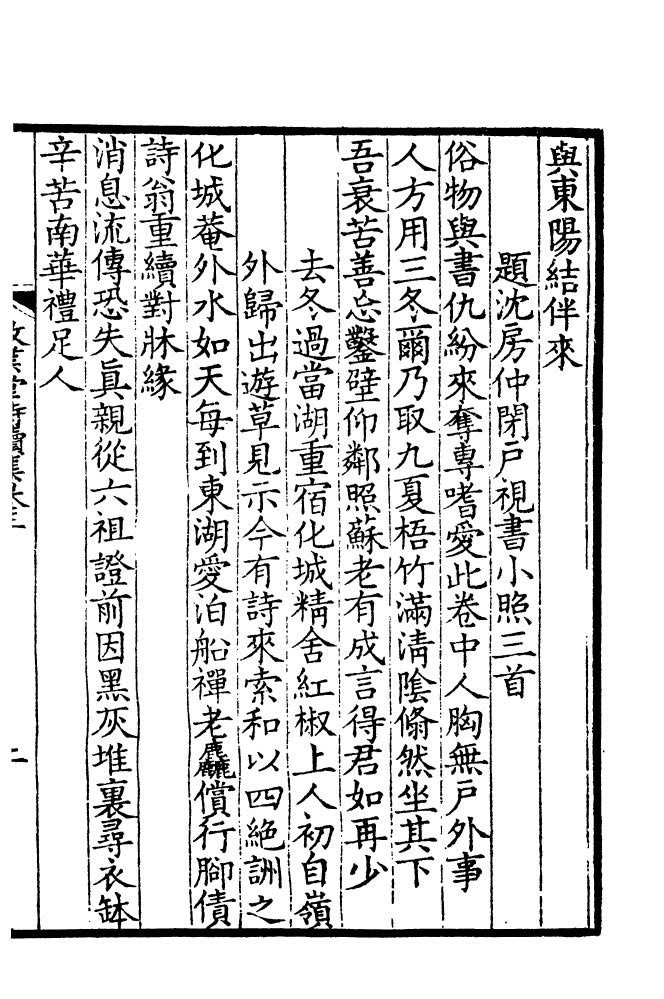 與東陽結伴來
題沈房仲閉戸視書小照三首
俗物與書仇紛來奪專嗜愛此卷中人胸無戸外事
人方用三冬爾乃取九夏梧竹滿淸陰翛然坐其下
吾衰苦善忘鑿壁仰鄰照蘇老有成言得君如再少
去冬過當湖重宿化城精舍紅椒上人初自嶺
外歸出遊草見示今有詩來索和以四絶詶之
化城菴外水如天每到東湖愛泊船禪老麤償行腳債
詩翁重續對牀緣
消息流傳恐失眞親從六祖證前因黑灰堆裏尋衣缽
辛苦南華禮足人
敬業堂詩續集卷三
二